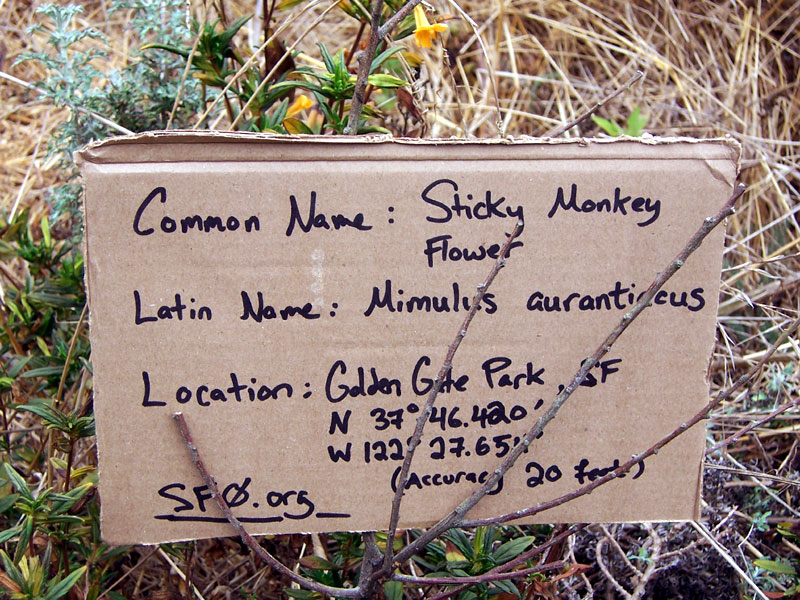 Common Name: Sticky Monkey
Flower
Latin Name: Mimulus aurantiacus
Location: Golden Gate Park, SF
N 37° 46.420'
W 122°
(Accuracy 20 feet)
SFØ.org_